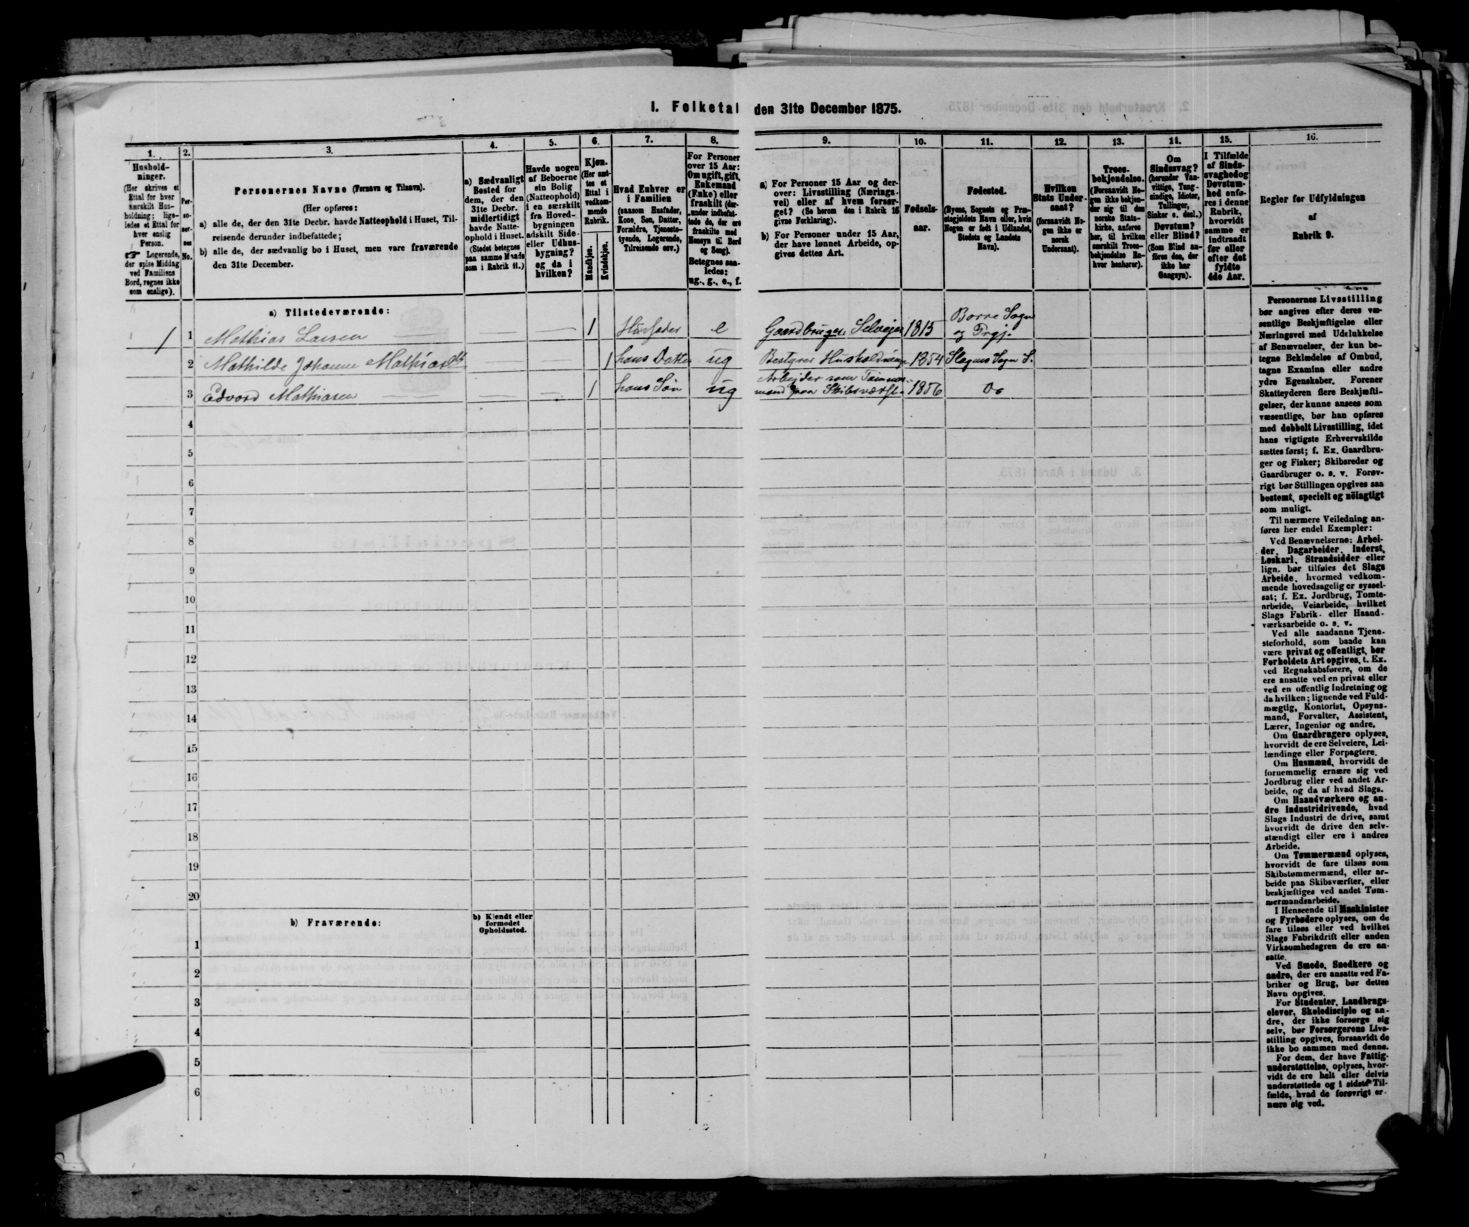 I. Folketal den 31te December 1875.
1. 2. 3. 4. 5. 6. 7. 8. 9. 10. 11. 12. 13. 14. 15. 16.
Hushold-
ninger.
(Her skrives et
Ettal for hver
særskilt Hus-
holdning; lige-
ledes et Ettal for
hver enslig
Person.
☞ Logerende,
der spise Middag
ved Familiens
Bord, regnes ikke
som enslige).
Per-
so-
ner-
nes
No.
Personernes Navne (Fornavn og Tilnavn).
(Her opføres:
a) alle de, der den 31te Decbr. havde Natteophold i Huset, Til-
reisende derunder indbefattede;
b) alle de, der sædvanlig bo i Huset, men vare fraværende
den 31te December.
a) Sædvanligt
Bosted for
dem, der den
31te Decbr.
midlertidigt
havde Natte-
ophold i Huset.
(Stedet betegnes
paa samme Maade
som i Rubrik 11.)
Havde nogen
af Beboerne
sin Bolig
(Natteophold)
i en særskilt
fra Hoved-
bygningen
adskilt Side-
eller Udhus-
bygning?
og da i
hvilken?
Kjøn.
(Her sæt-
tes et
Ettal i
vedkom-
mende
Rubrik.
Mandkjøn.
Kvindekjøn.
Hvad Enhver er
i Familien
(saasom Husfader,
Kone, Søn, Datter,
Forældre, Tjeneste-
tyende, Logerende,
Tilreisende osv.)
For Personer
over 15 Aar:
Om ugift, gift,
Enkemand
(Enke) eller
fraskilt (der-
under indbefat-
tede de, der ere
fraskilte med
Hensyn til Bord
og Seng).
Betegnes saa-
ledes:
ug., g., e., f.
a) For Personer 15 Aar og der-
over: Livsstilling (Nærings-
vei) eller af hvem forsør-
get? (Se herom den i Rubrik 16
givne Forklaring).
b) For Personer under 15 Aar,
der have lønnet Arbeide, op-
gives dettes Art.
Fødsels-
aar.
Fødested.
(Byens, Sognets og Præ-
stegjeldets Navn eller, hvis
Nogen er født i Udlandet,
Stedets og Landets
Navn).
Hvilken
Stats Under-
saat?
(forsaavidt No-
gen ikke er
norsk
Undersaat).
Troes-
bekjendelse.
(Forsaavidt No-
gen ikke bekjen-
der sig til den
norske Stats-
kirke, anføres
her, til hvilken
særskilt Troes-
bekjendelse En-
hver henhører).
Om
Sindssvag?
(herunder Van-
vittige, Tung-
sindige, Idioter,
Tullinger,
Sinker o. desl.)
Døvstum?
eller Blind?
(Som Blind an-
føres den, der
ikke har
Gangsyn).
I Tilfælde
af Sinds-
svaghed og
Døvstum-
hed anfø-
res i denne
Rubrik,
hvorvidt
samme er
indtraadt
før eller
efter det
fyldte
4de Aar.
Regler for Udfyldningen
af
Rubrik 9.
a) Tilstedeværende:
1 1 Mathias Larsen 1 Husfader e Gaardbruger Selveier 1815 Borre Sogn
og Prgj.
2 Mathilde Johanne Mathiasdt 1 hans Datter ug Bestyrer Husholdningen 1854 Slagens Sogn
3 Edvard Mathiasen 1 hans Søn ug Arbejder som Tømmer-
mand paa Skibsværft 1856 Do
4
5
6
7
8
9
10
11
12
13
14
15
16
17
18
19
20
b) Fraværende:
b) Kjendt eller
formodet
Opholdssted.
1
2
3
4
5
6
Personernes Livsstilling
bør angives efter deres væ-
sentlige Beskjæftigelse eller
Næringsvei med Udelukkelse
af Benævnelser, der kun be-
tegne Beklædelse af Ombud,
tagne Examina eller andre
ydre Egenskaber. Forener
Skatteyderen flere Beskjæfti-
gelser, der kunne ansees som
væsentlige, bør han opføres
med dobbelt Livsstilling, idet
hans vigtigste Erhvervskilde
sættes først; f. Ex. Gaardbru-
ger og Fisker; Skibsreder og
Gaardbruger o. s. v. Forøv-
rigt bør Stillingen opgives saa
bestemt, specielt og nöiagtigt
som muligt.
Til nærmere Veiledning an-
føres her endel Exempler:
Ved Benævnelserne: Arbei-
der, Dagarbeider, Inderst,
Løskarl, Strandsidder eller
lign. bør tilføies det Slags
Arbeide, hvormed vedkom-
mende hovedsagelig er syssel-
sat; f. Ex. Jordbrug, Tomte-
arbeide, Veiarbeide, hvilket
Slags Fabrik- eller Haand-
værksarbeide o. s. v.
Ved alle saadanne Tjene-
steforhold, som baade kan
være privat og offentligt, bør
Forholdets Art opgives, t. Ex.
ved Regnskabsførere, om de
ere ansatte ved en privat eller
ved en offentlig Indretning og
da hvilken; lignende ved Fuld-
mægtig, Kontorist, Opsyns-
mand, Forvalter, Assistent,
Lærer, Ingeniør og andre.
Om Gaardbrugere oplyses,
hvorvidt de ere Selveiere, Lei-
lændinge eller Forpagtere.
Om Husmænd, hvorvidt de
fornemmelig ernære sig ved
Jordbrug eller ved andet Ar-
beide, og da af hvad Slags.
Om Haandværkere og an-
dre Industridrivende, hvad
Slags Industri de drive, samt
hvorvidt de drive den selv-
stændigt eller ere i andres
Arbeide.
Om Tømmermænd oplyses,
hvorvidt de fare tilsøs som
Skibstømmermænd, eller ar-
beide paa Skibsværfter, eller
beskjæftiges ved andet Tøm-
mermandsarbeide.
I Henseende til Maskinister
og Fyrbødere oplyses, om de
fare tilsøs eller ved hvilket
Slags Fabrikdrift eller anden
Virksomhedsgren de ere an-
satte.
Ved Smede, Snedkere og
andre, der ere ansatte ved Fa-
briker og Brug, bør dettes
Navn opgives.
For Studenter, Landbrugs-
elever, Skoledisciple og an-
dre, der ikke forsørge sig
selv, bør Forsørgerens Livs-
stilling opgives, forsaavidt de
ikke bo sammen med denne.
For dem, der have Fattig-
understøttelse, oplyses, hvor-
vidt de ere helt eller delvis
understøttede og i sidste Til-
fælde, hvad de forøvrigt er-
nære sig ved.